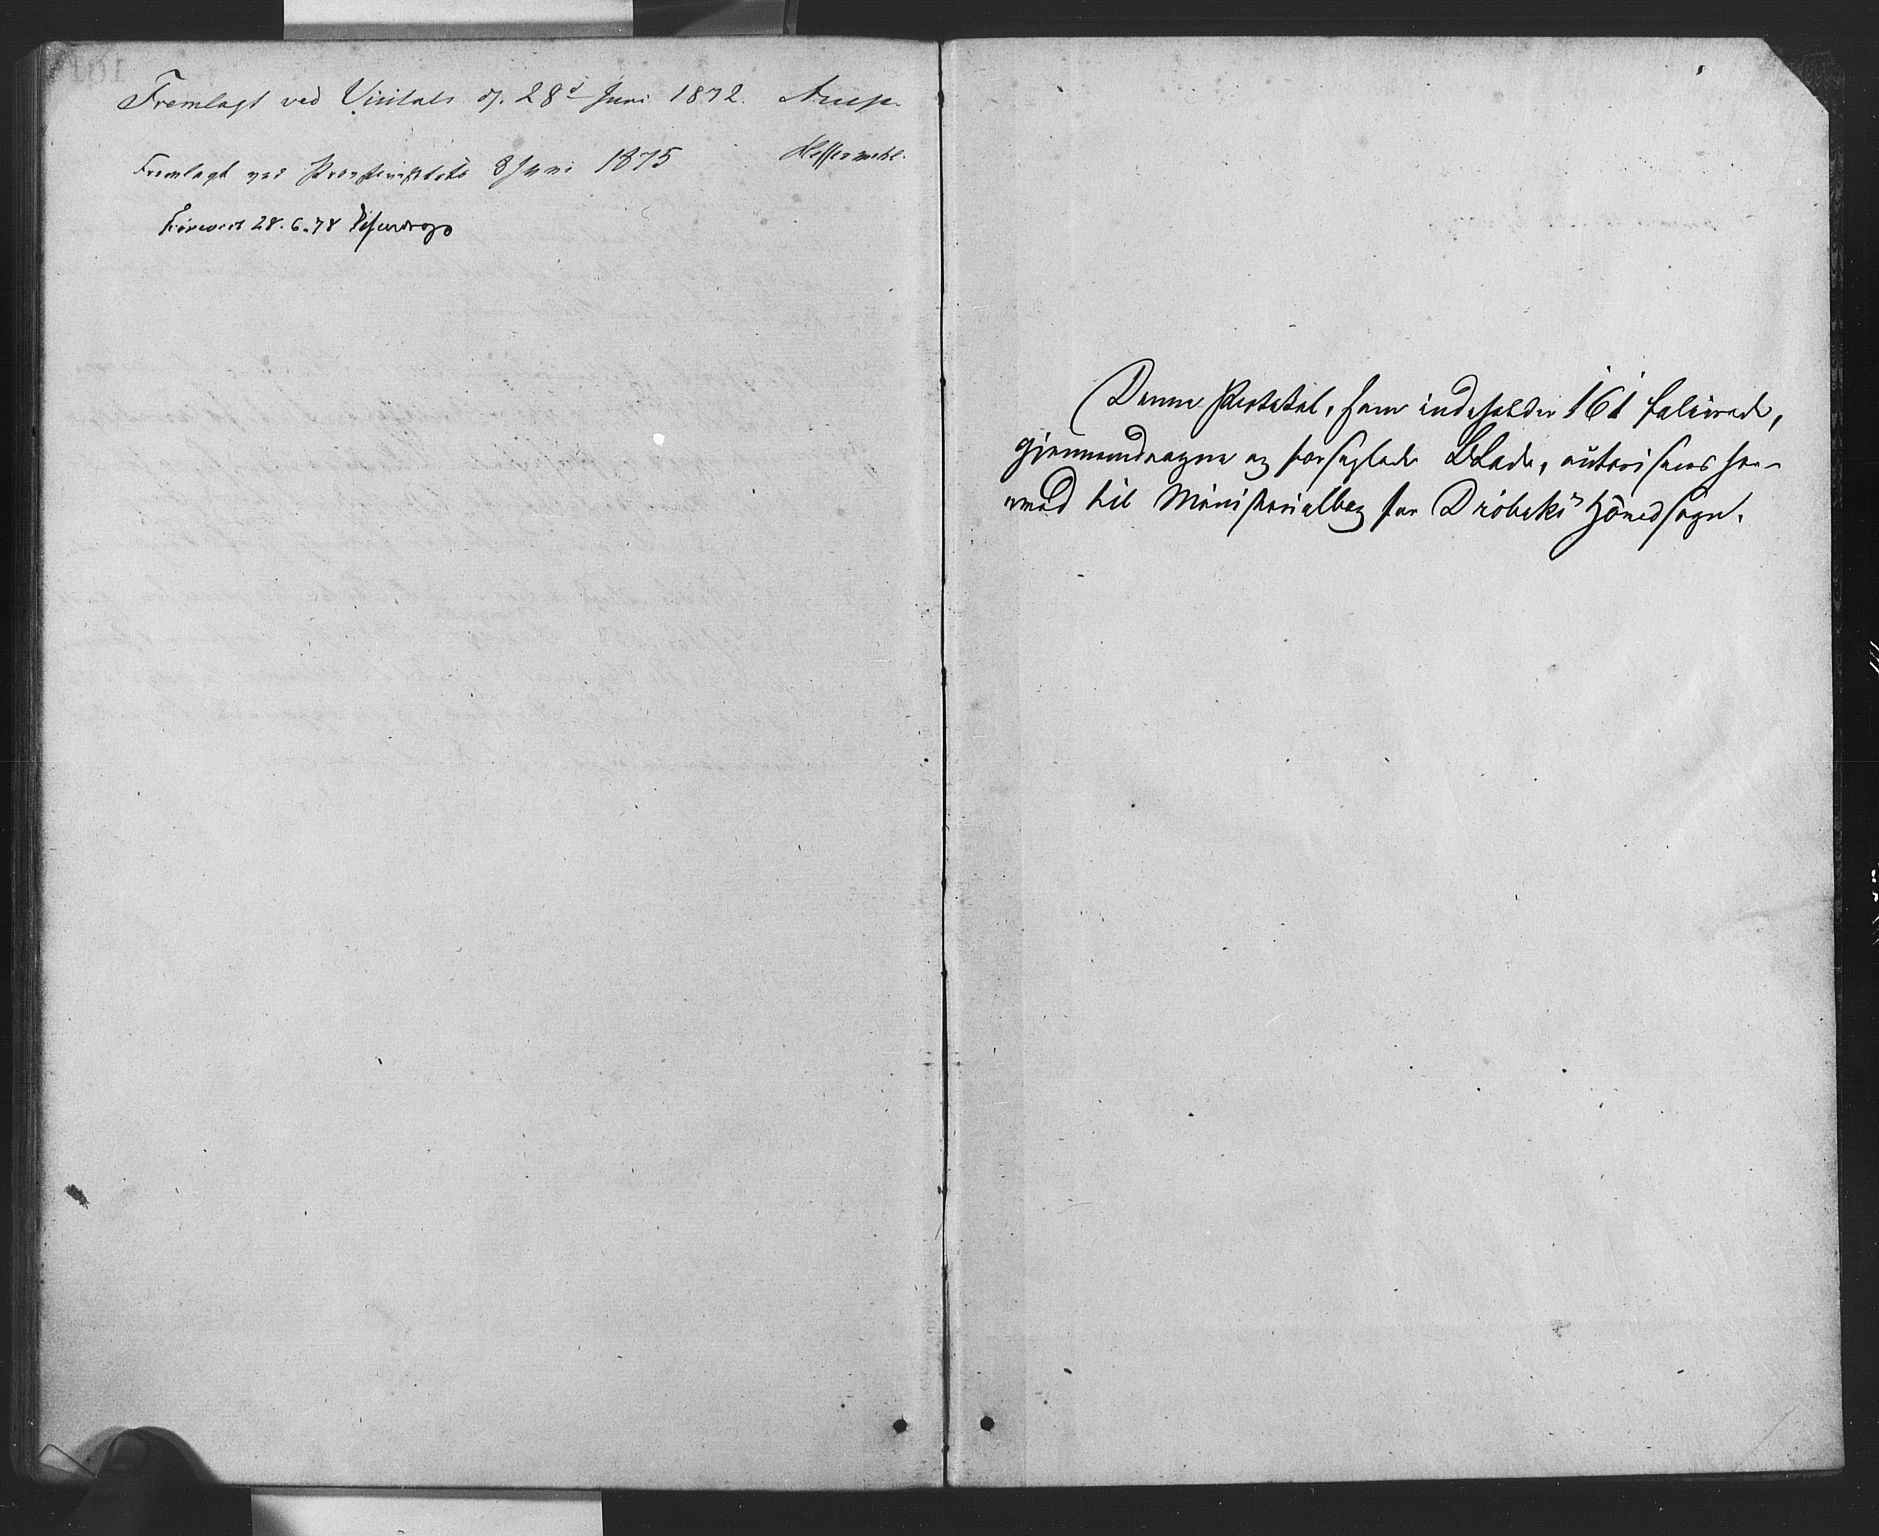 Fremlagt ved Visitats d. 28d Juni 1872. Arup
Fremlagt ved Provstevisitats 8 Juni 1875
Foreviist 28.6.78
Denne Protokol, som indeholder 161 folierede,
gjennemdragne og forseglede Blade, autoriseres her-
med til Ministerialbog for Drøbaks Hovedsogn.